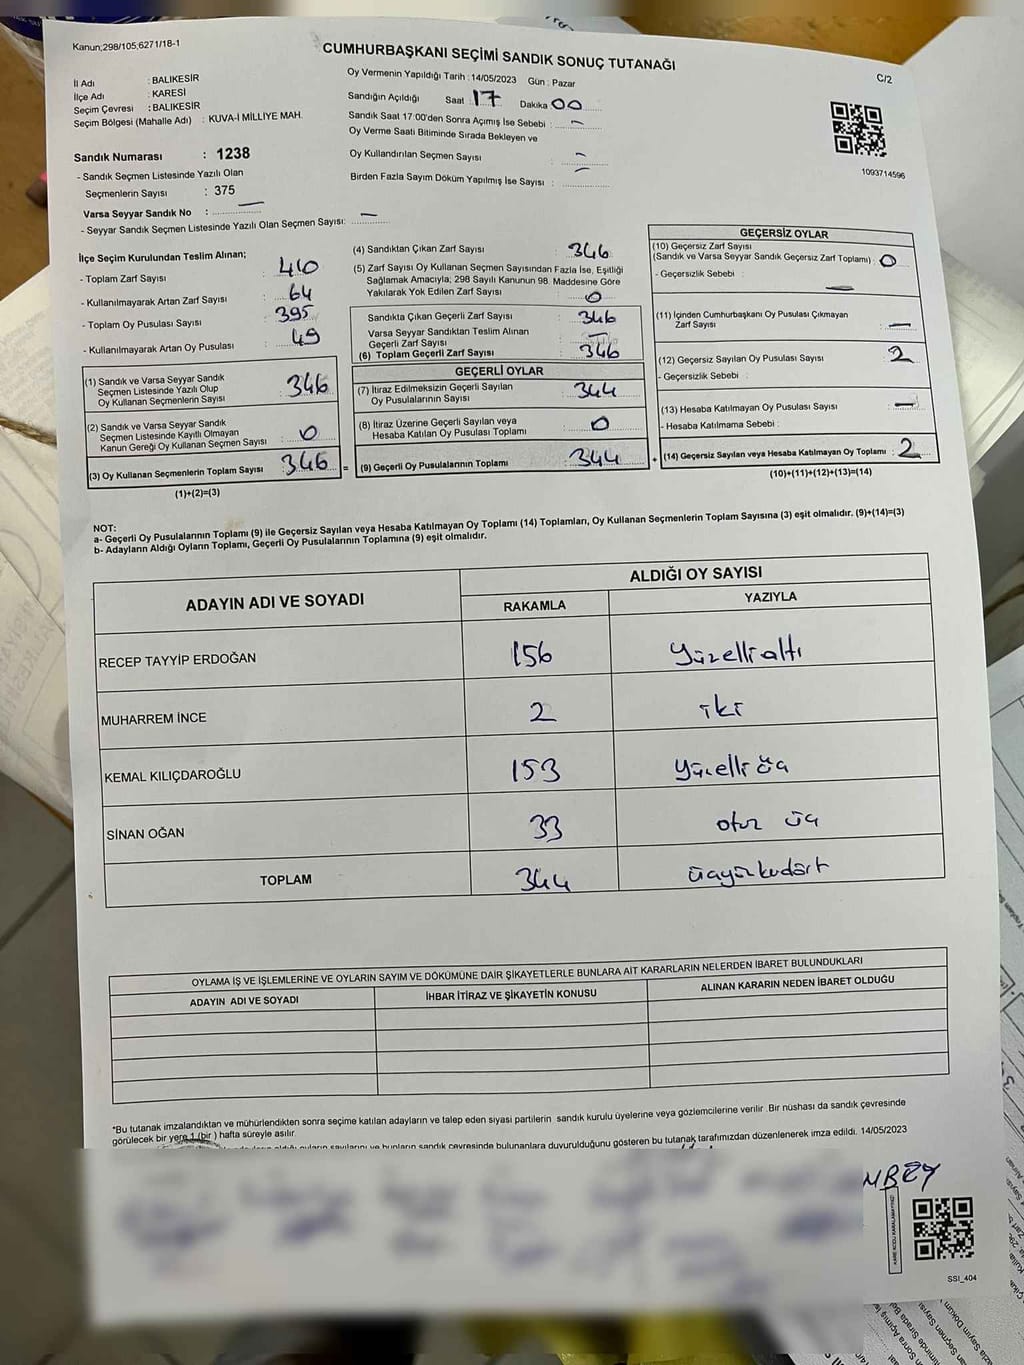 Kanun;298/105;6271/18-1
CUMHURBAŞKANI SEÇİMİ SANDIK SONUÇ TUTANAĞI
C/2
İl Adı : BALIKESİR
İlçe Adı : KARESİ
Seçim Çevresi : BALIKESİR
Seçim Bölgesi (Mahalle Adı) : KUVA-İ MİLLİYE MAH.
Sandık Numarası : 1238
- Sandık Seçmen Listesinde Yazılı Olan
Seçmenlerin Sayısı : 375
Varsa Seyyar Sandık No : —
- Seyyar Sandık Seçmen Listesinde Yazılı Olan Seçmen Sayısı: —
Oy Vermenin Yapıldığı Tarih : 14/05/2023 Gün : Pazar
Sandığın Açıldığı Saat 17 Dakika 00
Sandık Saat 17:00'den Sonra Açımış İse Sebebi : —
Oy Verme Saati Bitiminde Sırada Bekleyen ve
Oy Kullandırılan Seçmen Sayısı : —
Birden Fazla Sayım Döküm Yapılmış İse Sayısı : —
1093714596
İlçe Seçim Kurulundan Teslim Alınan;
- Toplam Zarf Sayısı : 410
- Kullanılmayarak Artan Zarf Sayısı : 64
- Toplam Oy Pusulası Sayısı : 395
- Kullanılmayarak Artan Oy Pusulası : 49
(1) Sandık ve Varsa Seyyar Sandık
Seçmen Listesinde Yazılı Olup
Oy Kullanan Seçmenlerin Sayısı : 346
(2) Sandık ve Varsa Seyyar Sandık
Seçmen Listesinde Kayıtlı Olmayan
Kanun Gereği Oy Kullanan Seçmen Sayısı : 0
(3) Oy Kullanan Seçmenlerin Toplam Sayısı : 346
(1)+(2)=(3)
(4) Sandıktan Çıkan Zarf Sayısı : 346
(5) Zarf Sayısı Oy Kullanan Seçmen Sayısından Fazla İse, Eşitliği
Sağlamak Amacıyla; 298 Sayılı Kanunun 98. Maddesine Göre
Yakılarak Yok Edilen Zarf Sayısı : 0
Sandıkta Çıkan Geçerli Zarf Sayısı : 346
Varsa Seyyar Sandıktan Teslim Alınan
Geçerli Zarf Sayısı : —
(6) Toplam Geçerli Zarf Sayısı : 346
GEÇERLİ OYLAR
(7) İtiraz Edilmeksizin Geçerli Sayılan
Oy Pusulalarının Sayısı : 344
(8) İtiraz Üzerine Geçerli Sayılan veya
Hesaba Katılan Oy Pusulası Toplamı : 0
= (9) Geçerli Oy Pusulalarının Toplamı : 344
GEÇERSİZ OYLAR
(10) Geçersiz Zarf Sayısı
(Sandık ve Varsa Seyyar Sandık Geçersiz Zarf Toplamı) : 0
- Geçersizlik Sebebi : —
(11) İçinden Cumhurbaşkanı Oy Pusulası Çıkmayan
Zarf Sayısı : —
(12) Geçersiz Sayılan Oy Pusulası Sayısı : 2
- Geçersizlik Sebebi :
(13) Hesaba Katılmayan Oy Pusulası Sayısı : —
- Hesaba Katılmama Sebebi :
+ (14) Geçersiz Sayılan veya Hesaba Katılmayan Oy Toplamı : 2
(10)+(11)+(12)+(13)=(14)
NOT:
a- Geçerli Oy Pusulalarının Toplamı (9) ile Geçersiz Sayılan veya Hesaba Katılmayan Oy Toplamı (14) Toplamları, Oy Kullanan Seçmenlerin Toplam Sayısına (3) eşit olmalıdır. (9)+(14)=(3)
b- Adayların Aldığı Oyların Toplamı, Geçerli Oy Pusulalarının Toplamına (9) eşit olmalıdır.
ADAYIN ADI VE SOYADI ALDIĞI OY SAYISI
RAKAMLA YAZIYLA
RECEP TAYYİP ERDOĞAN 156 Yüzelli altı
MUHARREM İNCE 2 iki
KEMAL KILIÇDAROĞLU 153 Yüzelli üç
SİNAN OĞAN 33 otuz üç
TOPLAM 344 üçyüzkıdört
OYLAMA İŞ VE İŞLEMLERİNE VE OYLARIN SAYIM VE DÖKÜMÜNE DAİR ŞİKAYETLERLE BUNLARA AİT KARARLARIN NELERDEN İBARET BULUNDUKLARI
ADAYIN ADI VE SOYADI İHBAR İTİRAZ VE ŞİKAYETİN KONUSU ALINAN KARARIN NEDEN İBARET OLDUĞU
*Bu tutanak imzalandıktan ve mühürlendikten sonra seçime katılan adayların ve talep eden siyasi partilerin sandık kurulu üyelerine veya gözlemcilerine verilir .Bir nüshası da sandık çevresinde
görülecek bir yere 1 (bir ) hafta süreyle asılır.
aldığı oyların sayılarını ve bunların sandık çevresinde bulunanlara duyurulduğunu gösteren bu tutanak tarafımızdan düzenlenerek imza edildi. 14/05/2023
MBEY
SSI_404